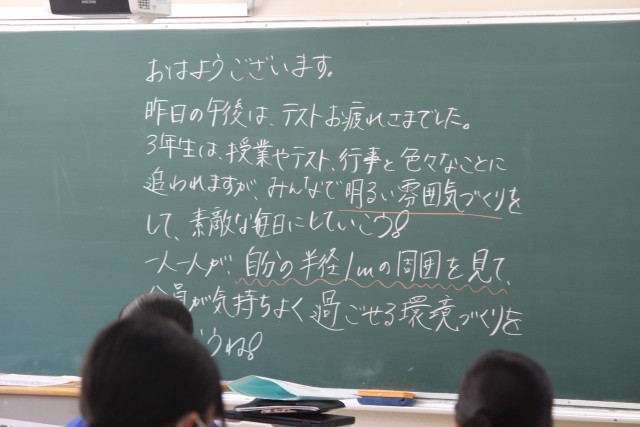 おはようございます。
昨日の午後は、テストお疲れさまでした。
3年生は、授業やテスト、行事と色々なことに
追われますが、みんなで明るい雰囲気づくりを
して、素敵な毎日にしていこう!
一人一人が、自分の半径1mの周囲を見て、
全員が気持ちよく過ごせる環境づくりを
うね!